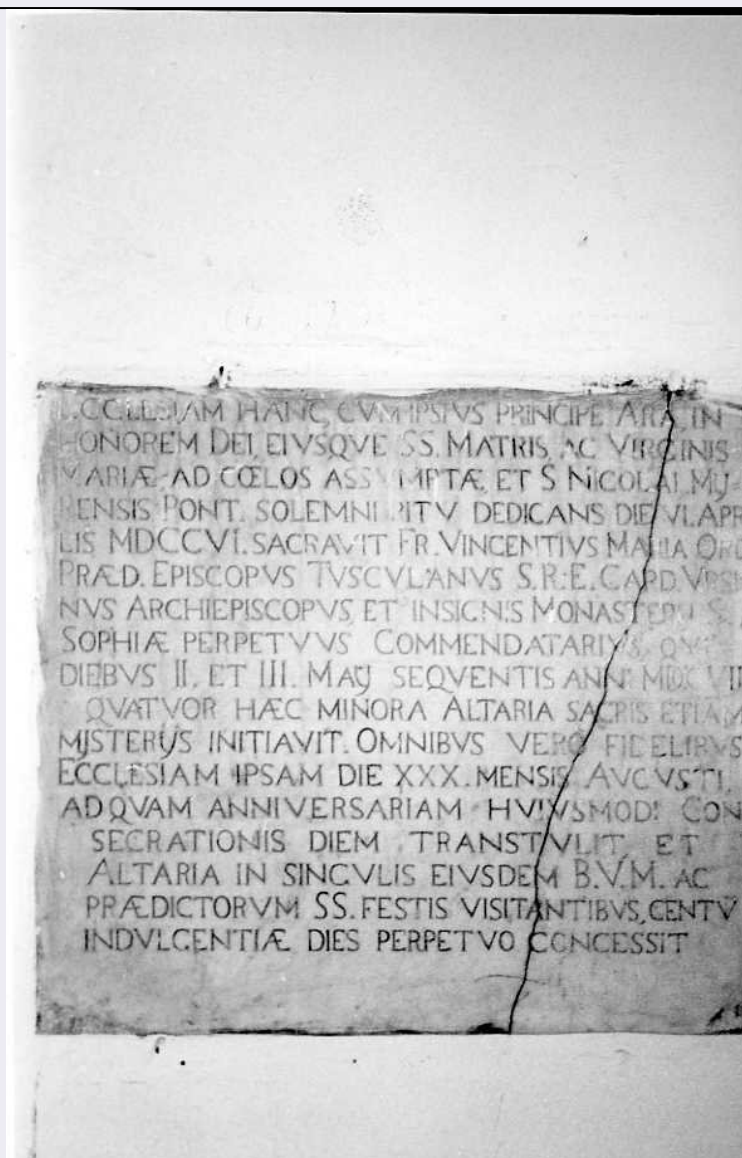 ECCLESIAM HANC, CVM IPSIVS PRINCIPE ARA IN
HONOREM DEI, EIVSQVE SS. MATRIS, AC VIRGINIS
MARIÆ AD CŒLOS ASSVMPTÆ, ET S. NICOLAI MY-
RENSIS PONT. SOLEMNI RITV DEDICANS DIE VI. APR
LIS MDCCVI. SACRAVIT FR. VINCENTIVS MARIA ORD
PRÆD. EPISCOPVS TVSCVLANVS S.R.E. CARD. VRSI
NVS ARCHIEPISCOPVS, ET INSIGNIS MONASTERII S.
SOPHIÆ PERPETVVS COMMENDATARIVS,
DIEBVS II. ET III. MAIJ SEQVENTIS ANN.
QVATVOR HÆC MINORA ALTARIA SACRIS ETIAM
MISTERIJS INITIAVIT. OMNIBVS VERO FIDELIBVS
ECCLESIAM IPSAM DIE XXX. MENSIS AVGVSTI,
AD QVAM ANNIVERSARIAM HVIVSMODI CON
SECRATIONIS DIEM TRANSTVLIT, ET
ALTARIA IN SINGVLIS EIVSDEM B.V.M. AC
PRÆDICTORVM SS. FESTIS VISITANTIBVS, CENTV̄
INDVLGENTIÆ DIES PERPETVO CONCESSIT